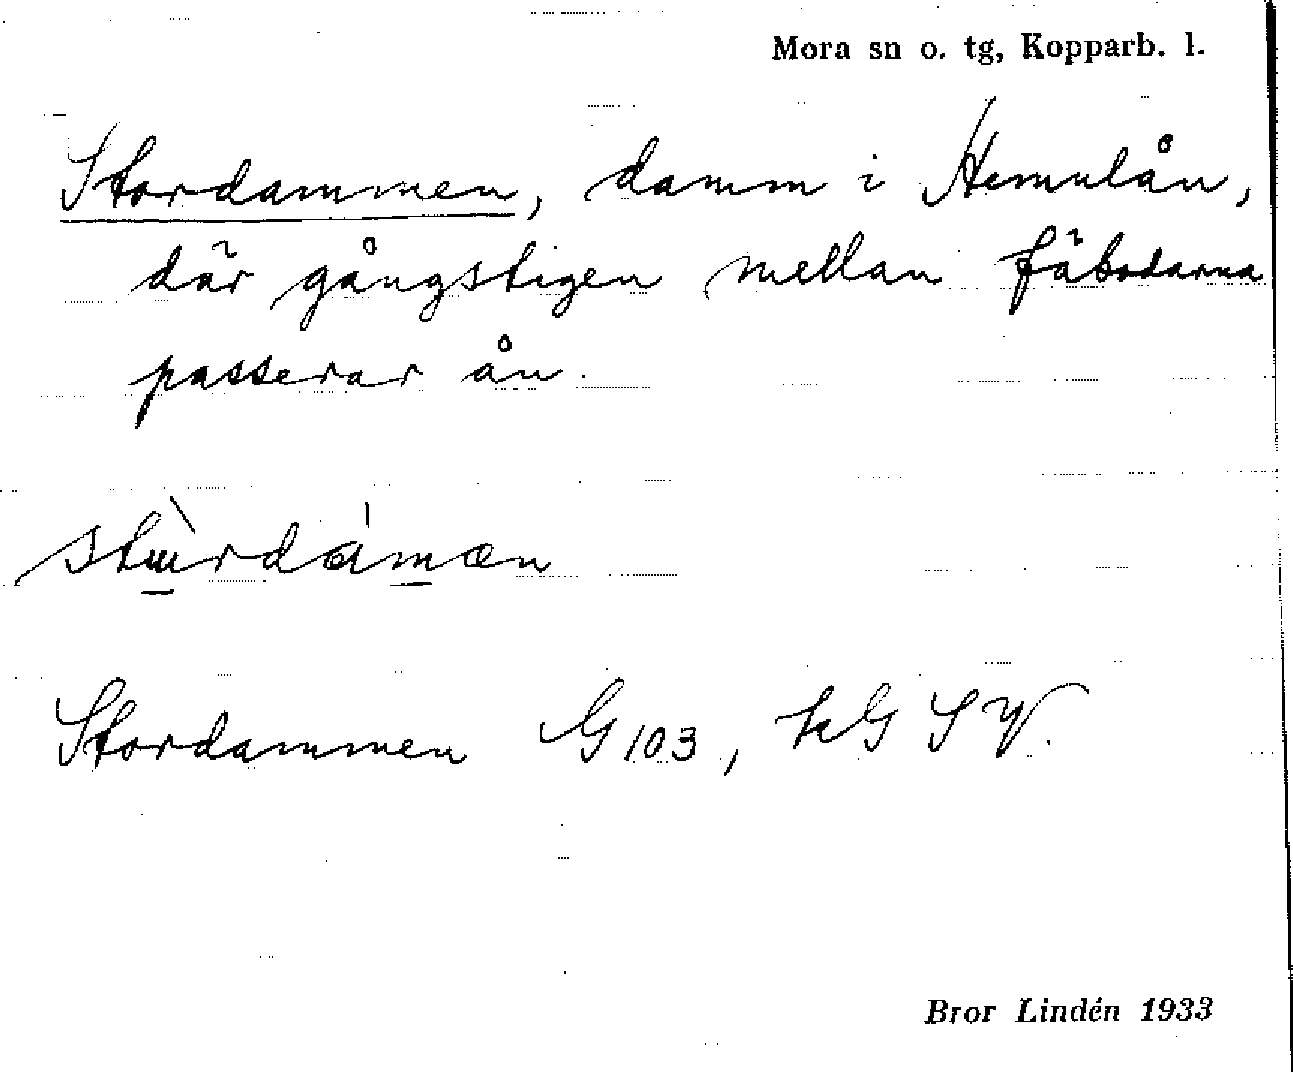 Mora sn o. tg, Kopparb. l.
Stordammen, damm i Hemulån,
där gångstigen mellan fäbodarna
passerar ån.
Stordammen G 103, kG SV.
Bror Lindén 1933